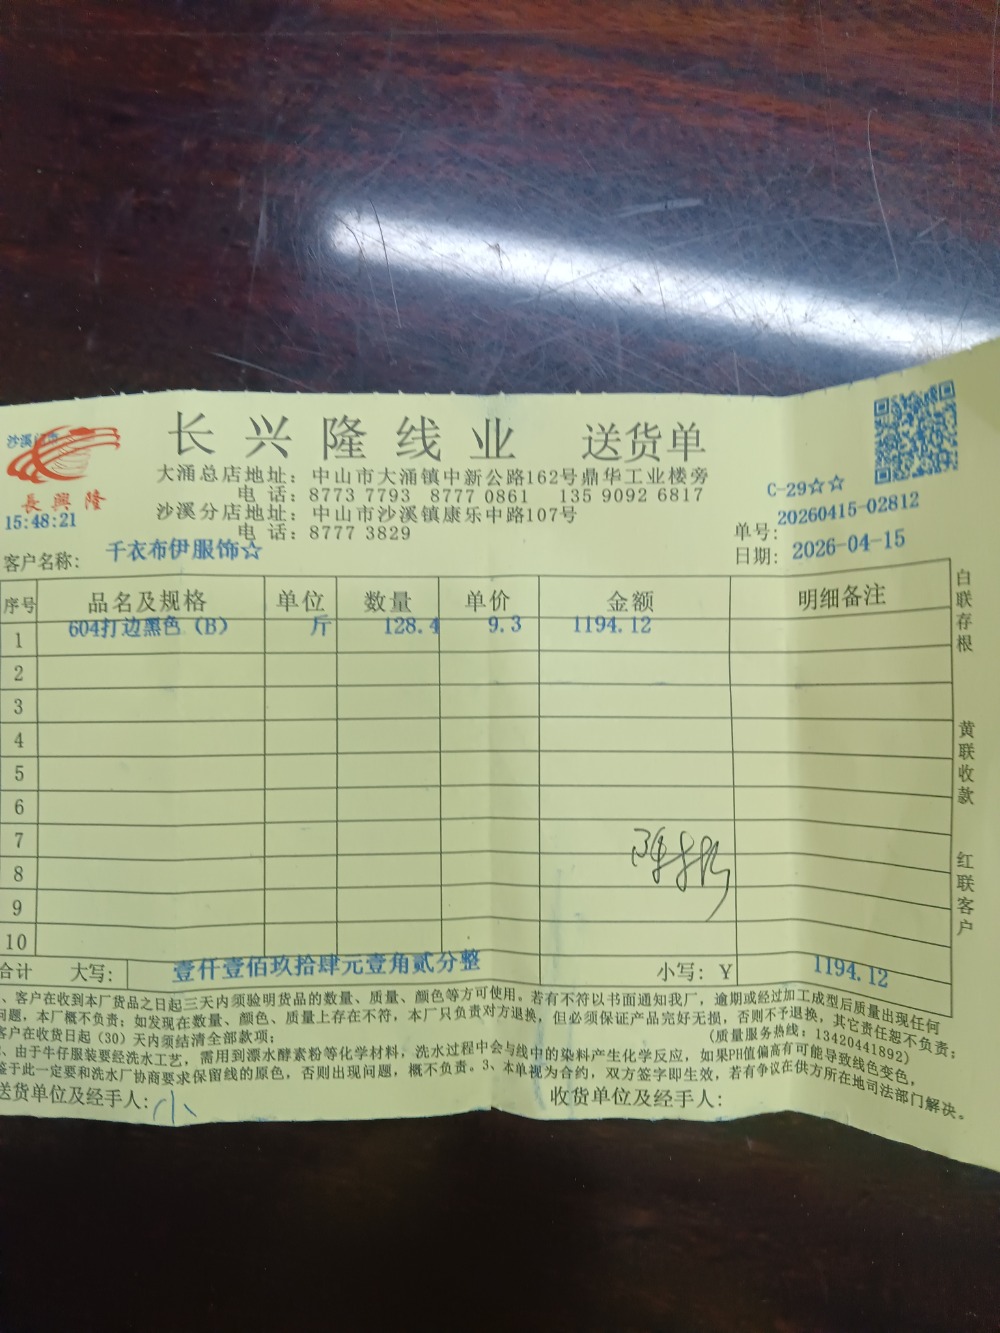 长兴隆线业 送货单
沙溪
長興隆
15:48:21
大涌总店地址：中山市大涌镇中新公路162号鼎华工业楼旁
电 话：8773 7793 8777 0861 135 9092 6817
沙溪分店地址：中山市沙溪镇康乐中路107号
电 话：8777 3829
C-29☆☆
单号：20260415-02812
日期：2026-04-15
客户名称：千衣布伊服饰☆
序号 品名及规格 单位 数量 单价 金额 明细备注
1 604打边黑色（B） 斤 128.4 9.3 1194.12
2
3
4
5
6
7
8
9
10
合计 大写：壹仟壹佰玖拾肆元壹角贰分整 小写：Y 1194.12
白联存根
黄联收款
红联客户
、客户在收到本厂货品之日起三天内须验明货品的数量、质量、颜色等方可使用。若有不符以书面通知我厂，逾期或经过加工成型后质量出现任何
问题，本厂概不负责；如发现在数量、颜色、质量上存在不符，本厂只负责对方退换，但必须保证产品完好无损，否则不予退换，其它责任恕不负责；
客户在收货日起（30）天内须结清全部款项； (质量服务热线：13420441892)
、由于牛仔服装要经洗水工艺，需用到漂水酵素粉等化学材料，洗水过程中会与线中的染料产生化学反应，如果PH值偏高有可能导致线色变色，
鉴于此一定要和洗水厂协商要求保留线的原色，否则出现问题，概不负责。3、本单视为合约，双方签字即生效，若有争议在供方所在地司法部门解决。
送货单位及经手人：小
收货单位及经手人：